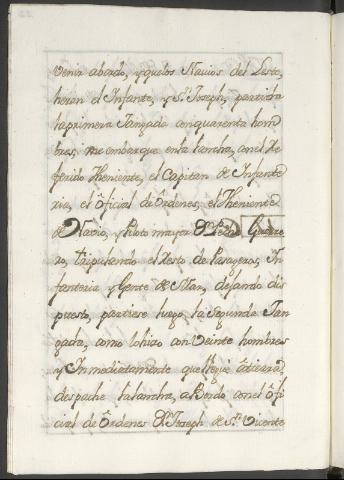 Venir abordo, y que los Navios del Leste,
heran el Infante, y Sn. Joseph, partida
la primera Jangada con quarenta hom
bres, me embarque en la lancha, con el Re
ferido Theniente, el Capitan de Infante
ria, el oficial de Ordenes, el Theniente
de Navio, y Piloto mayor Dn. Guerre
ro, tripulando el Resto de Pasageros, In
fanteria y Gente de Mar, dejando dis
puesto, partiese luego, la Segunda Jan
gada, como lo hizo con Veinte hombres
y Inmediatamente que llegue â tierra,
despache la lancha, a Bordo con el ofi
cial de Ordenes Dn. Joseph de Sn. Vicente